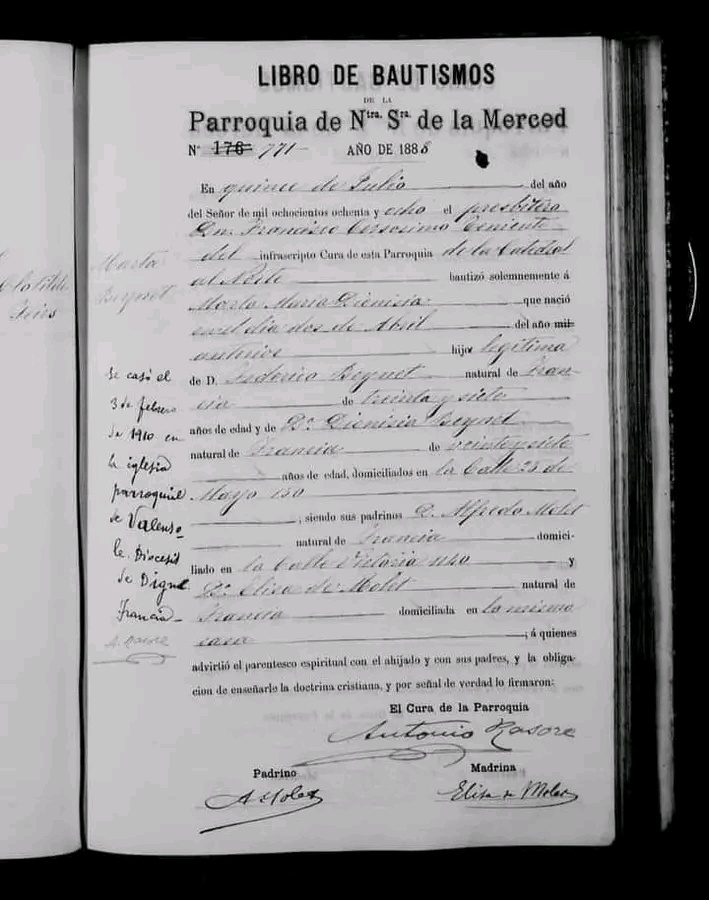 LIBRO DE BAUTISMOS
DE LA
Parroquia de Ntra. Sra. de la Merced
N° 176 771 AÑO DE 1888
En quince de Julio del año
del Señor de mil ochocientos ochenta y ocho el presbítero
Dn. Francisco Teniente
del infrascripto Cura de esta Parroquia de la Catedral
al Norte bautizó solemnemente á
Marta Maria Dionisia que nació
en el dia dos de Abril del año mil
hija legitima
de D. Federico Beynet natural de Fran-
cia de treinta y siete
años de edad y de Da. Dionisia Beynet
natural de Francia de veinte y siete
años de edad, domiciliados en la Calle 25 de
Mayo 150
; siendo sus padrinos D. Alfredo Molet
natural de Francia domici-
liado en la Calle Victoria y
Da. Elisa de Molet natural de
Francia domiciliada en la misma
casa ; á quienes
advirtió el parentesco espiritual con el ahijado y con sus padres, y la obliga-
cion de enseñarle la doctrina cristiana, y por señal de verdad lo firmaron:
El Cura de la Parroquia
Antonio Rasore
Padrino Madrina
A Molet Elisa de Molet
Marta
Beynet
Se casó el
3 de febrero
de 1910 en
la iglesia
parroquial
de Valenso-
le. Diocesis
de Digne
Francia-
A. Rasore
Clotilde